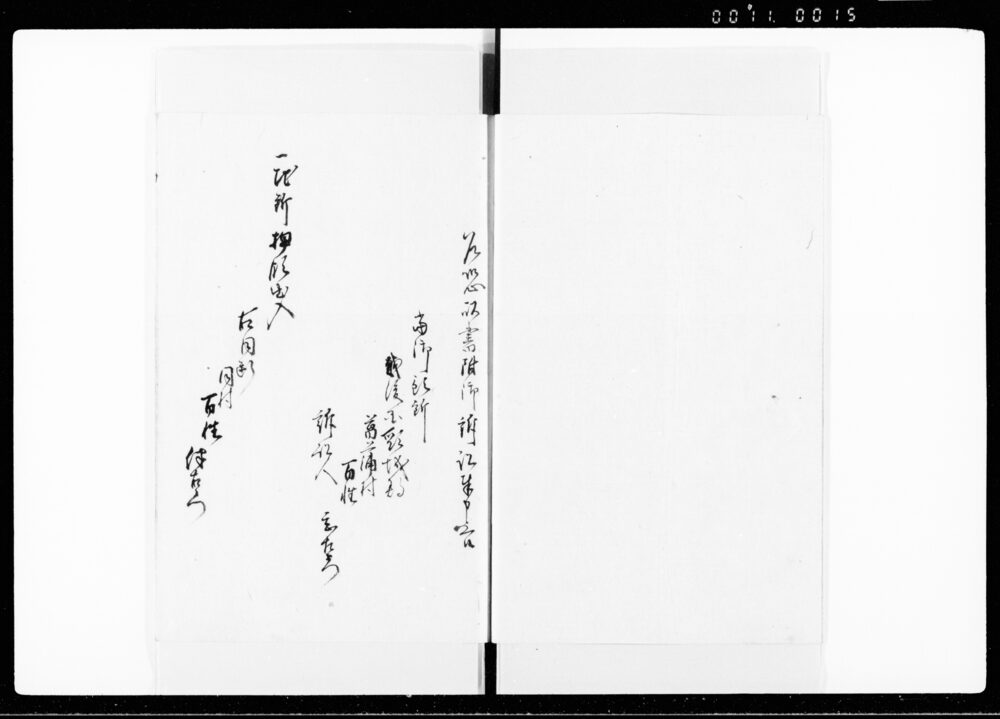 0071 0015
乍恐以書附御訴訟奉申上候
当御預所
越後国頸城郡
菖蒲村
百姓
訴訟人
左衛門
一地所押領出入
右同郡
同村
百姓